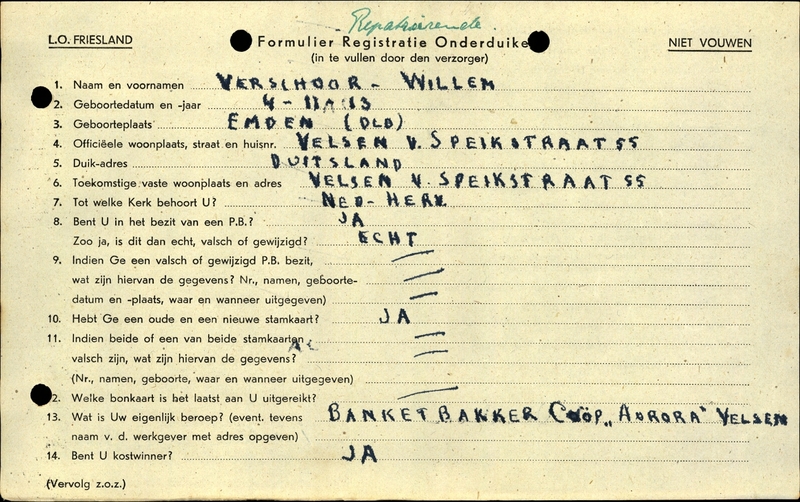 Repatrieerende.
L.O. FRIESLAND
Formulier Registratie Onderduike
NIET VOUWEN
(in te vullen door den verzorger)
1. Naam en voornamen VERSCHOOR - WILLEM
2. Geboortedatum en -jaar
3. Geboorteplaats EMDEN (DLD)
4. Officiëele woonplaats, straat en huisnr. VELSEN V. SPEIKSTRAAT 55
5. Duik-adres DUITSLAND
6. Toekomstige vaste woonplaats en adres VELSEN V. SPEIKSTRAAT 55
7. Tot welke Kerk behoort U? NED-HERV
8. Bent U in het bezit van een P.B.? JA
Zoo ja, is dit dan echt, valsch of gewijzigd? ECHT
9. Indien Ge een valsch of gewijzigd P.B. bezit,
wat zijn hiervan de gegevens? Nr., namen, geboorte-
datum en -plaats, waar en wanneer uitgegeven)
10. Hebt Ge een oude en een nieuwe stamkaart? JA
11. Indien beide of een van beide stamkaarten
valsch zijn, wat zijn hiervan de gegevens?
(Nr., namen, geboorte, waar en wanneer uitgegeven)
2. Welke bonkaart is het laatst aan U uitgereikt?
13. Wat is Uw eigenlijk beroep? (event. tevens BANKETBAKKER COÖP. „AURORA" VELSEN
naam v. d. werkgever met adres opgeven)
14. Bent U kostwinner? JA
(Vervolg z.o.z.)